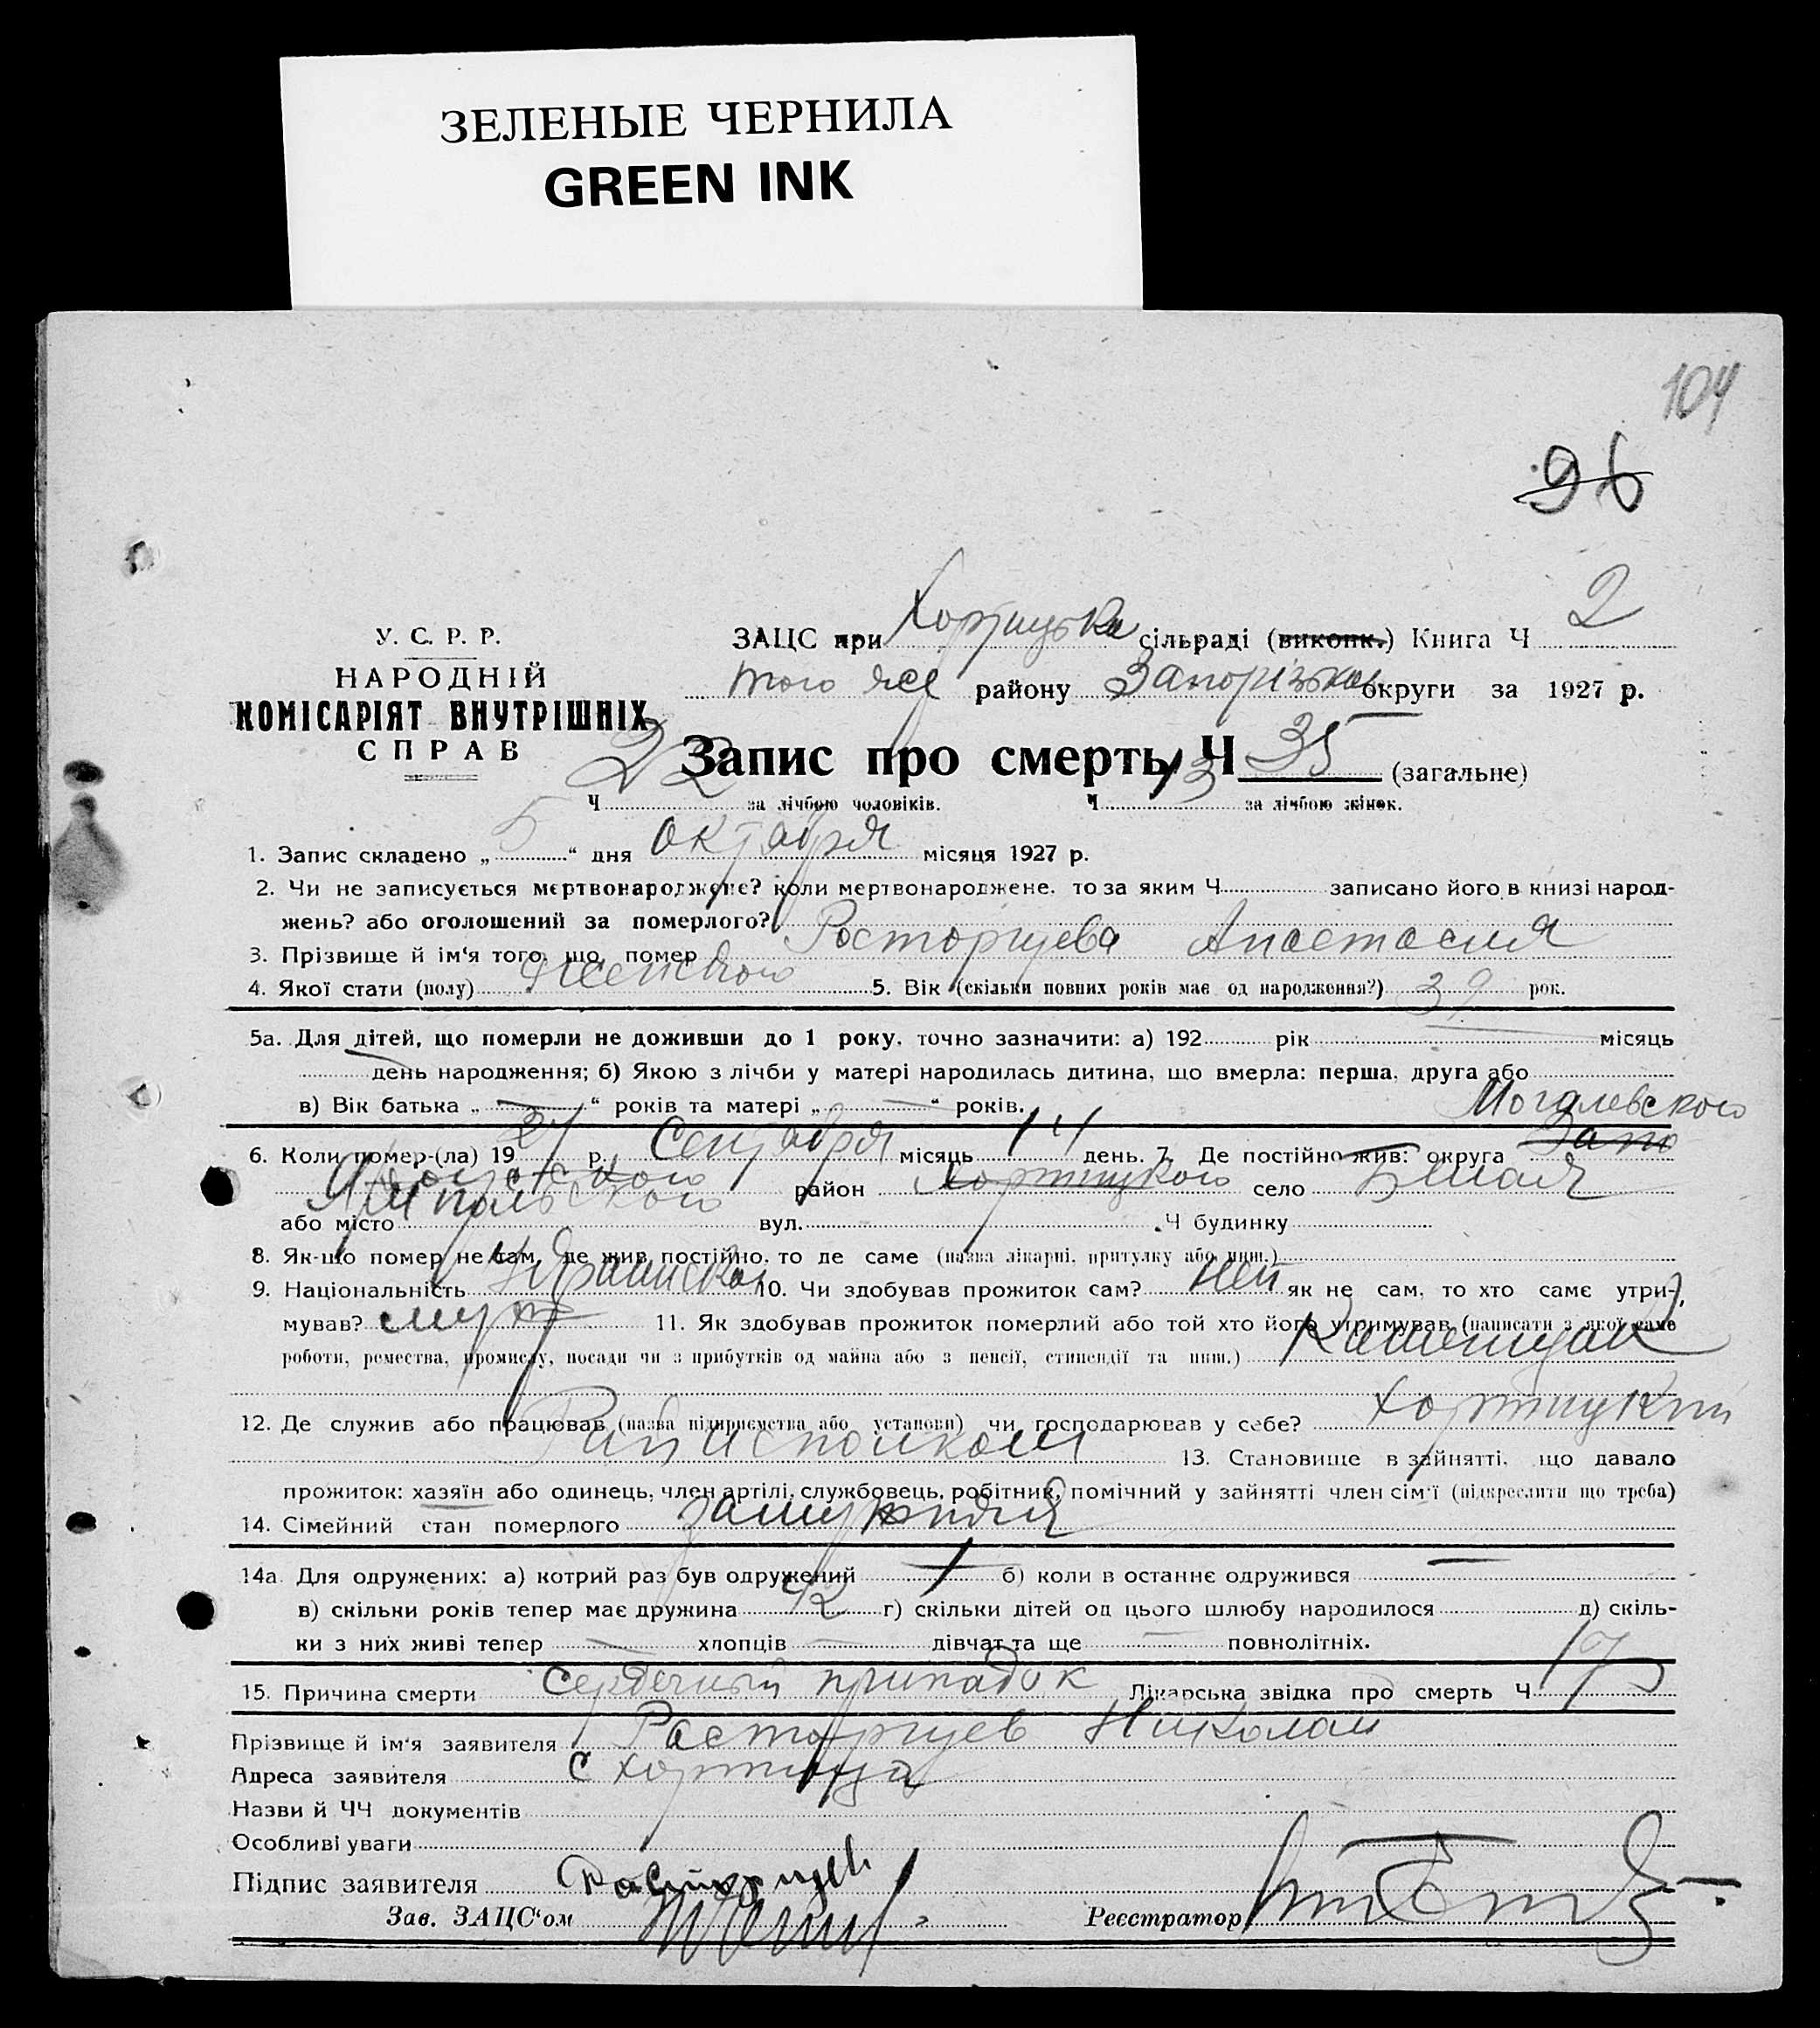 ЗЕЛЕНЫЕ ЧЕРНИЛА
GREEN INK
104
96
У. С. Р. Р.
НАРОДНІЙ
КОМІСАРІЯТ ВНУТРІШНІХ
СПРАВ
ЗАЦС при Хортицька сільраді (виконк.) Книга Ч 2
того же району Запорізько округи за 1927 р.
Запис про смерть Ч 35 (загальне)
Ч 22 за лічбою чоловіків. Ч 13 за лічбою жінок.
1. Запис складено „ 5 “ дня октября місяця 1927 р.
2. Чи не записується мертвонароджене? коли мертвонароджене, то за яким Ч записано його в книзі народ-
жень? або оголошений за померлого?
3. Прізвище й ім‘я того, що помер Расторгуева Анастасия
4. Якої стати (полу) женского 5. Вік (скільки повних років має од народження?) 39 рок.
5а. Для дітей, що померли не доживши до 1 року, точно зазначити: а) 192 рік місяць
день народження; б) Якою з лічби у матері народилась дитина, що вмерла: перша, друга або
в) Вік батька „ — “ років та матері „ — “ років.
Могилевского
6. Коли помер-(ла) 19 27 р. Сентября місяць 14 день. 7. Де постійно жив: округа Запо
Ямпольского район Хортицкого село Билая
або місто вул. Ч будинку
8. Як-що помер не там, де жив постійно, то де саме (назва лікарні, притулку або инш.)
9. Національність 10. Чи здобував прожиток сам? нет як не сам, то хто саме утри-
мував? муж 11. Як здобував прожиток померлий або той хто його утримував (написати з якої саме
роботи, ремества, промислу, посади чи з прибутків од майна або з пенсії, стипендії та инш.)
12. Де служив або працював (назва підприємства або установи) чи господарював у себе? Хортицкий
Райисполком 13. Становище в зайнятті, що давало
прожиток: хазяїн або одинець, член артілі, службовець, робітник, помічний у зайнятті член сім‘ї (підкреслити що треба)
14. Сімейний стан померлого замужняя
14а. Для одружених: а) котрий раз був одружений 1 б) коли в останнє одружився —
в) скільки років тепер має дружина 42 г) скільки дітей од цього шлюбу народилося д) скіль-
ки з них живі тепер — хлопців — дівчат та ще — повнолітніх.
15. Причина смерти Сердечный припадок Лікарська звідка про смерть Ч 175
Прізвище й ім‘я заявителя Расторгуев Николай
Адреса заявителя С Хортица
Назви й ЧЧ документів
Особливі уваги
Підпис заявителя Расторгуев
Зав. ЗАЦС‘ом Реєстратор